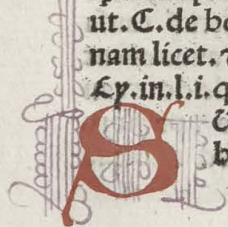 ut. C. de b
nam licet.
Ly. in. l. i. q
S
b